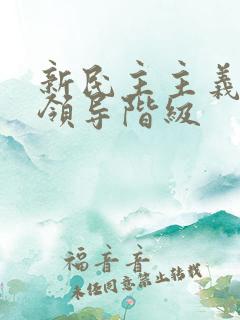 新民主主義
領导階級
福音音
未经同意禁止转载